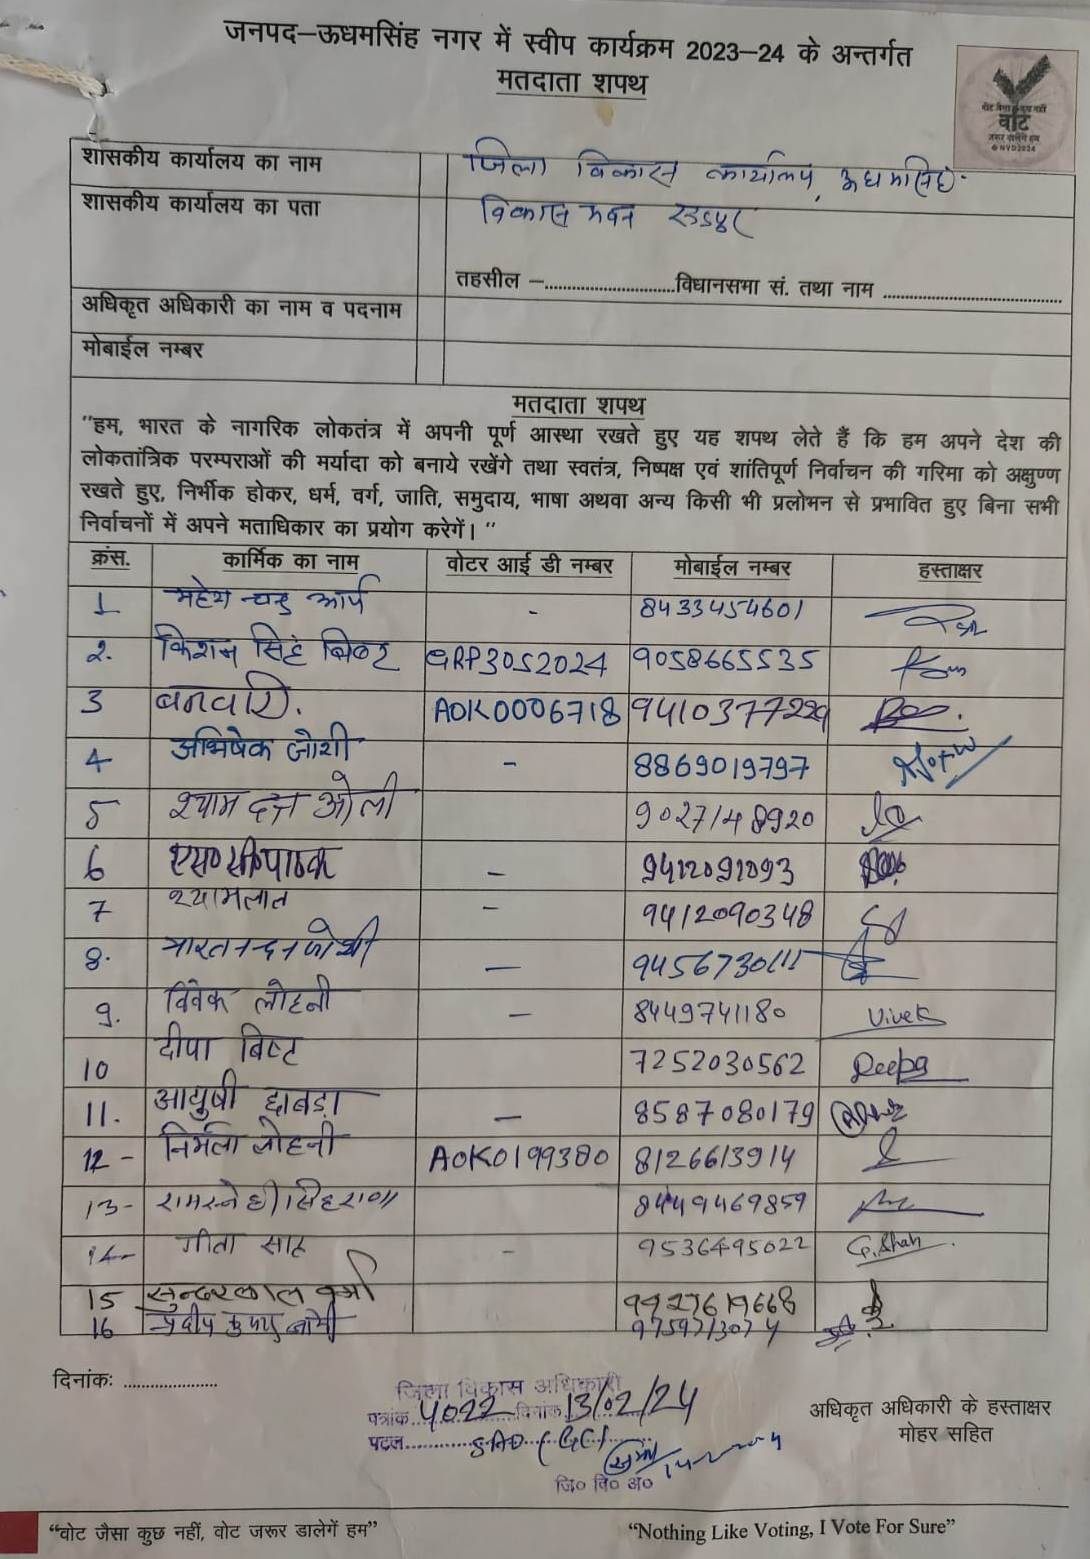 जनपद–ऊधमसिंह नगर में स्वीप कार्यक्रम 2023–24 के अन्तर्गत
मतदाता शपथ
वोट जैसा कुछ नहीं
वोट
जरूर डालेंगे हम
शासकीय कार्यालय का नाम जिला विकास कार्यालय, ऊधमसिंह
शासकीय कार्यालय का पता विकास भवन रुद्रपुर
तहसील –.......................... विधानसभा सं. तथा नाम ....................................
अधिकृत अधिकारी का नाम व पदनाम
मोबाईल नम्बर
मतदाता शपथ
"हम, भारत के नागरिक लोकतंत्र में अपनी पूर्ण आस्था रखते हुए यह शपथ लेते हैं कि हम अपने देश की
लोकतांत्रिक परम्पराओं की मर्यादा को बनाये रखेंगे तथा स्वतंत्र, निष्पक्ष एवं शांतिपूर्ण निर्वाचन की गरिमा को अक्षुण्ण
रखते हुए, निर्भीक होकर, धर्म, वर्ग, जाति, समुदाय, भाषा अथवा अन्य किसी भी प्रलोभन से प्रभावित हुए बिना सभी
निर्वाचनों में अपने मताधिकार का प्रयोग करेगें। "
क्रंस. कार्मिक का नाम वोटर आई डी नम्बर मोबाईल नम्बर हस्ताक्षर
1 महेश चन्द्र आर्य - 8433454601
2. किशन सिंह बिष्ट GRP3052024 9058665535
3 बनवारी. AOK0006718 9410377229
4 अभिषेक जोशी - 8869019797
5 श्याम दत्त ओली 9027148920
6 एस०सी०पाठक - 9412091093
7 श्यामलाल - 9412090348
8. जोशी - 9456730111
9. विवेक लोहनी - 8449741180 Vivek
10 दीपा बिष्ट 7252030562 Deepa
11. आयुषी छाबड़ा - 8587080179
12 - निर्मला लोहनी AOK0199380 8126613914
13- रामस्नेही सिंह राणा 8449469859
14- गीता साह - 9536495022 G.Shah
15 सुन्दरलाल वर्मा 9927619668
16 प्रदीप कुमार जोशी
दिनांकः ...................
जिला विकास अधिकारी
पत्रांक 4022 दिनांक 13/02/24
पटल
जि० वि० अ०
अधिकृत अधिकारी के हस्ताक्षर
मोहर सहित
"वोट जैसा कुछ नहीं, वोट जरूर डालेगें हम" "Nothing Like Voting, I Vote For Sure"